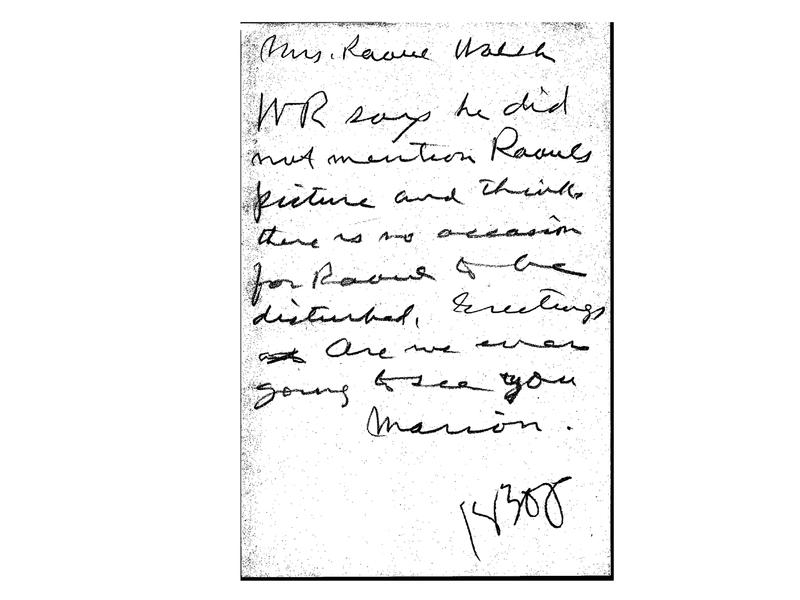 Mrs. Raoul Walsh
WR says he did
not mention Raouls
picture and thinks
there is no occasion
for Raoul to be
disturbed. Greetings
Are we ever
going to see you
Marion.